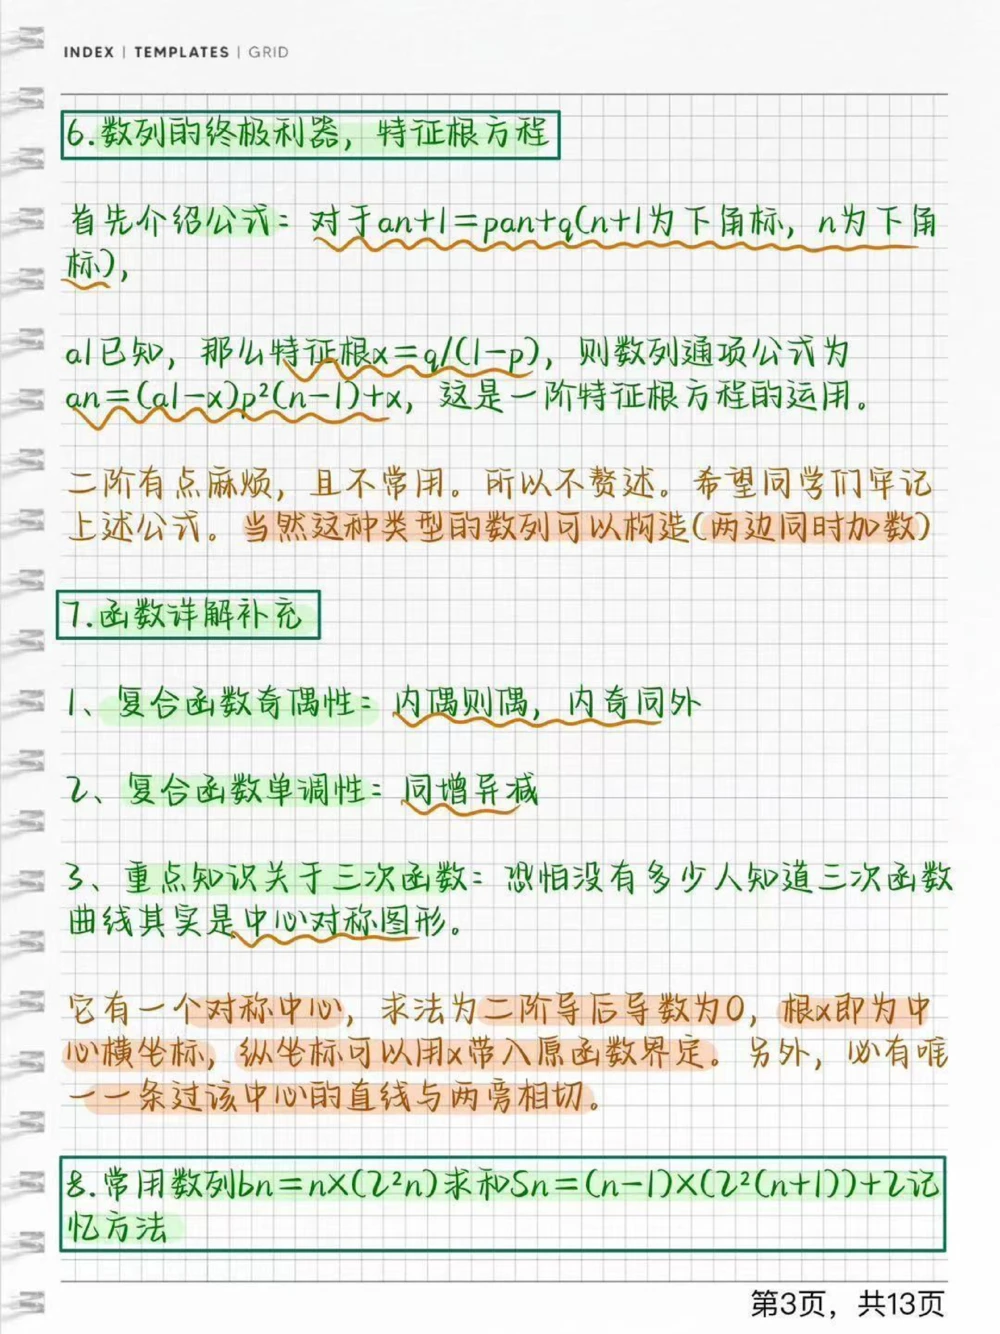 INDEX | TEMPLATES | GRID
6.数列的终极利器，特征根方程
首先介绍公式：对于an+1=pan+q(n+1为下角标，n为下角
标)，
a1已知，那么特征根x=q/(1-p)，则数列通项公式为
an=(a1-x)p²(n-1)+x，这是一阶特征根方程的运用。
二阶有点麻烦，且不常用。所以不赘述。希望同学们牢记
上述公式。当然这种类型的数列可以构造(两边同时加数)
7.函数详解补充
1、复合函数奇偶性：内偶则偶，内奇同外
2、复合函数单调性：同增异减
3、重点知识关于三次函数：恐怕没有多少人知道三次函数
曲线其实是中心对称图形。
它有一个对称中心，求法为二阶导后导数为0，根x即为中
心横坐标，纵坐标可以用x带入原函数界定。另外，必有唯
一一条过该中心的直线与两旁相切。
8.常用数列bn=n×(2²n)求和Sn=(n-1)×(2²(n+1))+2记
忆方法
第3页，共13页